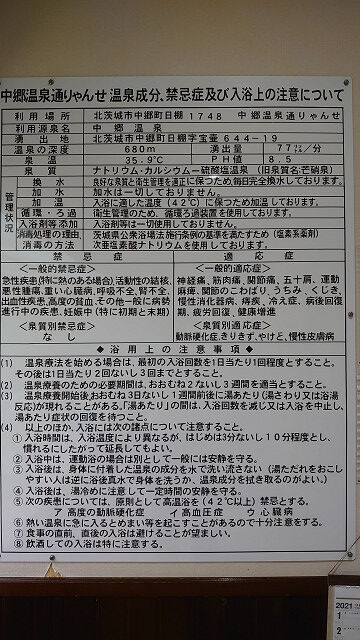 中郷温泉通りゃんせ 温泉成分、禁忌症及び入浴上の注意について
利用場所 北茨城市中郷町日棚1748 中郷温泉通りゃんせ
利用源泉名 中郷温泉
湧出地 北茨城市中郷町日棚字宝壷644-19
温泉の深度 680m 湧出量 77㍑/分
泉温 35.9℃ PH値 8.5
泉質 ナトリウム・カルシウム-硫酸塩温泉 (旧泉質名:芒硝泉)
管理状況
換水 良好な泉質と衛生管理を適正に保つため、毎日完全換水しております。
加水 加水は一切しておりません。
加温 入浴に適した温度(42℃)に保つため加温しております。
循環・ろ過 衛生管理のため、循環ろ過装置を使用しております。
入浴剤等添加 入浴剤等は一切使用しておりません。
消毒処理の理由 茨城県公衆浴場法施行条例の基準を満たすため(塩素系薬剤)
消毒の方法 次亜塩素酸ナトリウムを使用しております。
禁忌症 適応症
<一般的禁忌症>
急性疾患(特に熱のある場合)活動性の結核、
悪性腫瘍、重い心臓病、呼吸不全、腎不全、
出血性疾患、高度の貧血、その他一般に病勢
進行中の疾患、妊娠中(特に初期と末期)
<一般的適応症>
神経痛、筋肉痛、関節痛、五十肩、運動
麻痺、関節のこわばり、うちみ、くじき、
慢性消化器病、痔疾、冷え症、病後回復
期、疲労回復、健康増進
<泉質別禁忌症>
なし
<泉質別適応症>
動脈硬化症、きりきず、やけど、慢性皮膚病
◆浴用上の注意事項◆
(1) 温泉療法を始める場合は、最初の入浴回数を1日当たり1回程度とすること。
その後は1日当たり2回ないし3回までとすること。
(2) 温泉療養のための必要期間は、おおむね2ないし3週間を適当とすること。
(3) 温泉療養開始後、おおむね3日ないし1週間前後に湯あたり(湯さわり又は浴湯
反応)が現れることがある。「湯あたり」の間は、入浴回数を減じ又は入浴を中止し、
湯あたり症状の回復を待つこと。
(4) 以上のほか、入浴には次の諸点について注意すること。
①入浴時間は、入浴温度により異なるが、はじめは3分ないし10分程度とし、
慣れるにしたがって延長してもよい。
②入浴中は、運動浴の場合は別として一般には安静を守る。
③入浴後は、身体に付着した温泉の成分を水で洗い流さない(湯ただれをおこし
やすい人は逆に浴後真水で身体を洗うか、温泉成分を拭き取るのがよい。)
④入浴後は、湯冷めに注意して一定時間の安静を守る。
⑤次の疾患については、原則として高温浴を(42℃以上)禁忌とする。
ア 高度の動脈硬化症 イ 高血圧症 ウ 心臓病
⑥熱い温泉に急に入るとめまい等を起こすことがあるので十分注意をする。
⑦食事の直前、直後の入浴は避けることが望ましい。
⑧飲酒しての入浴は特に注意する。
2021
1
2